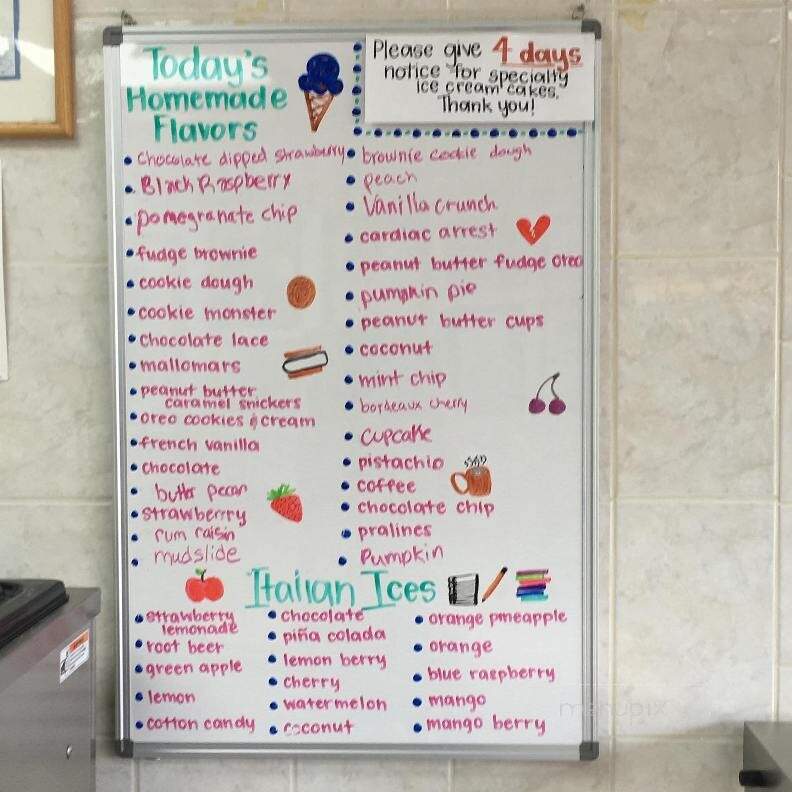 Today's
Homemade
Flavors
Please give 4 days
notice for specialty
ice cream cakes.
Thank you!
chocolate dipped strawberry
Black Raspberry
pomegranate chip
fudge brownie
cookie dough
cookie monster
chocolate lace
mallomars
peanut butter
caramel snickers
oreo cookies & cream
french vanilla
chocolate
butter pecan
strawberry
rum raisin
mudslide
brownie cookie dough
peach
Vanilla crunch
cardiac arrest
peanut butter fudge oreo
pumpkin pie
peanut butter cups
coconut
mint chip
bordeaux cherry
cupcake
pistachio
coffee
chocolate chip
pralines
Pumpkin
Italian Ices
strawberry
lemonade
root beer
green apple
lemon
cotton candy
chocolate
piña colada
lemon berry
cherry
watermelon
coconut
orange pineapple
orange
blue raspberry
mango
mango berry
menupix